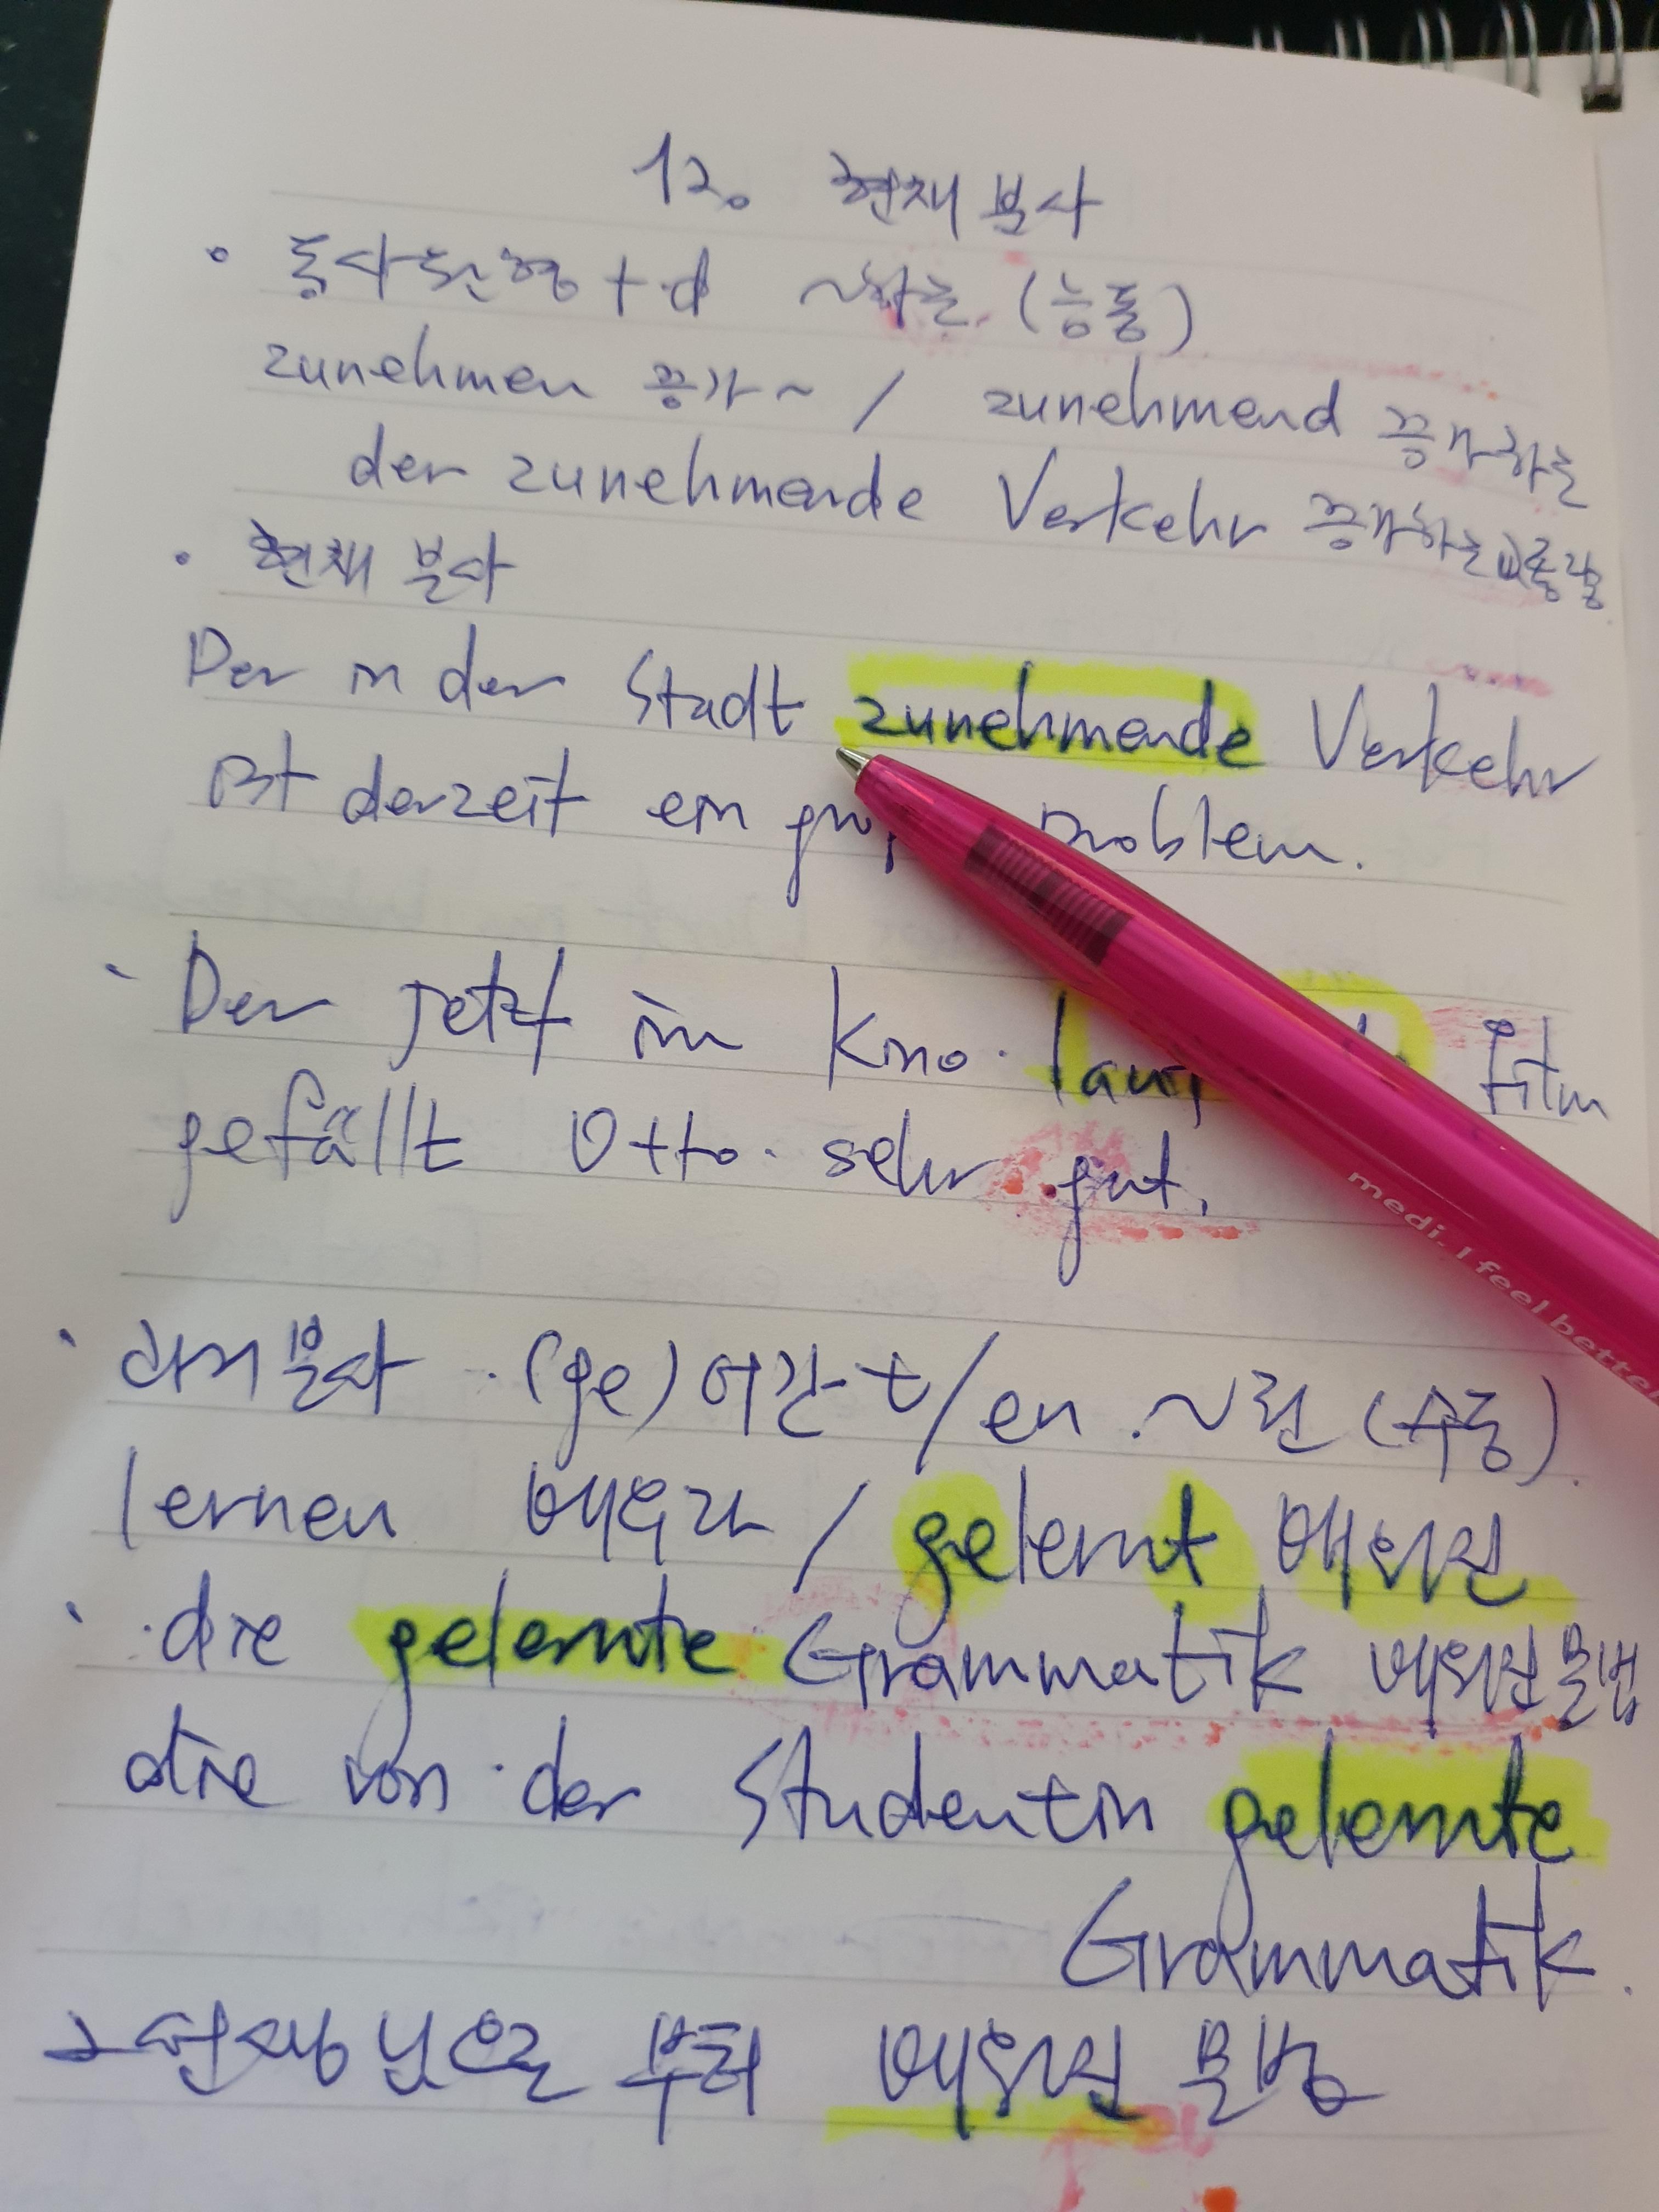 12. 현재 분사
• 동사원형 + d ~하는 (능동)
zunehmen 증가~ / zunehmend 증가하는
der zunehmende Verkehr 증가하는 교통량
• 현재 분사
Der in der Stadt zunehmende Verkehr
ist derzeit ein Problem.
Der jetzt im Kino Film
gefällt Otto sehr gut.
medi. I feel better
과거 분사 (ge) 어간 t/en ~된 (수동)
lernen 배우다 / gelernt 배워진
die gelernte Grammatik 배워진 문법
die von der Studentin gelernte
Grammatik.
선생님으로 부터 배워진 문법